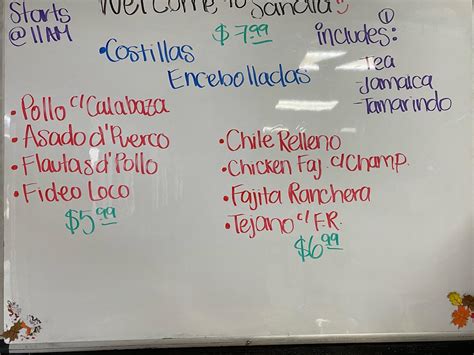 Welcome to Sandra's
Starts
@ 11 AM
$7.99
• Costillas
Encebolladas
① includes:
Tea
- Jamaica
- Tamarindo
• Pollo c/ Calabaza
• Asado d' Puerco
• Flautas d' Pollo
• Fideo Loco
$5.99
• Chile Relleno
• Chicken Faj. c/ Champ.
• Fajita Ranchera
• Tejano c/ F.R.
$6.99